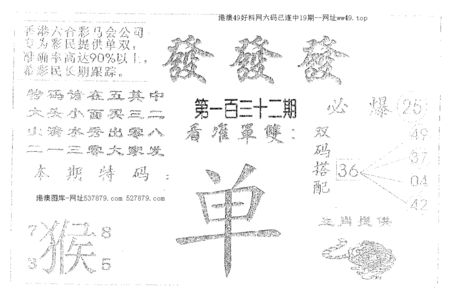 港澳49好料网六码已连中19期--网址ww49.top
香港六合彩马会公司
专为彩民提供单双,
准确率高达90%以上,
希彩民长期跟踪。
發發發
第一百三十二期
看准單雙:
必爆25
特码请在五其中
六头小面买三二
山清水秀出零八
二一三零大家发
本期特码:
港澳图库-网址537879.com 527879.com
双码搭配
36
49
37
04
42
单
7 8
猴
3 5
生肖提供